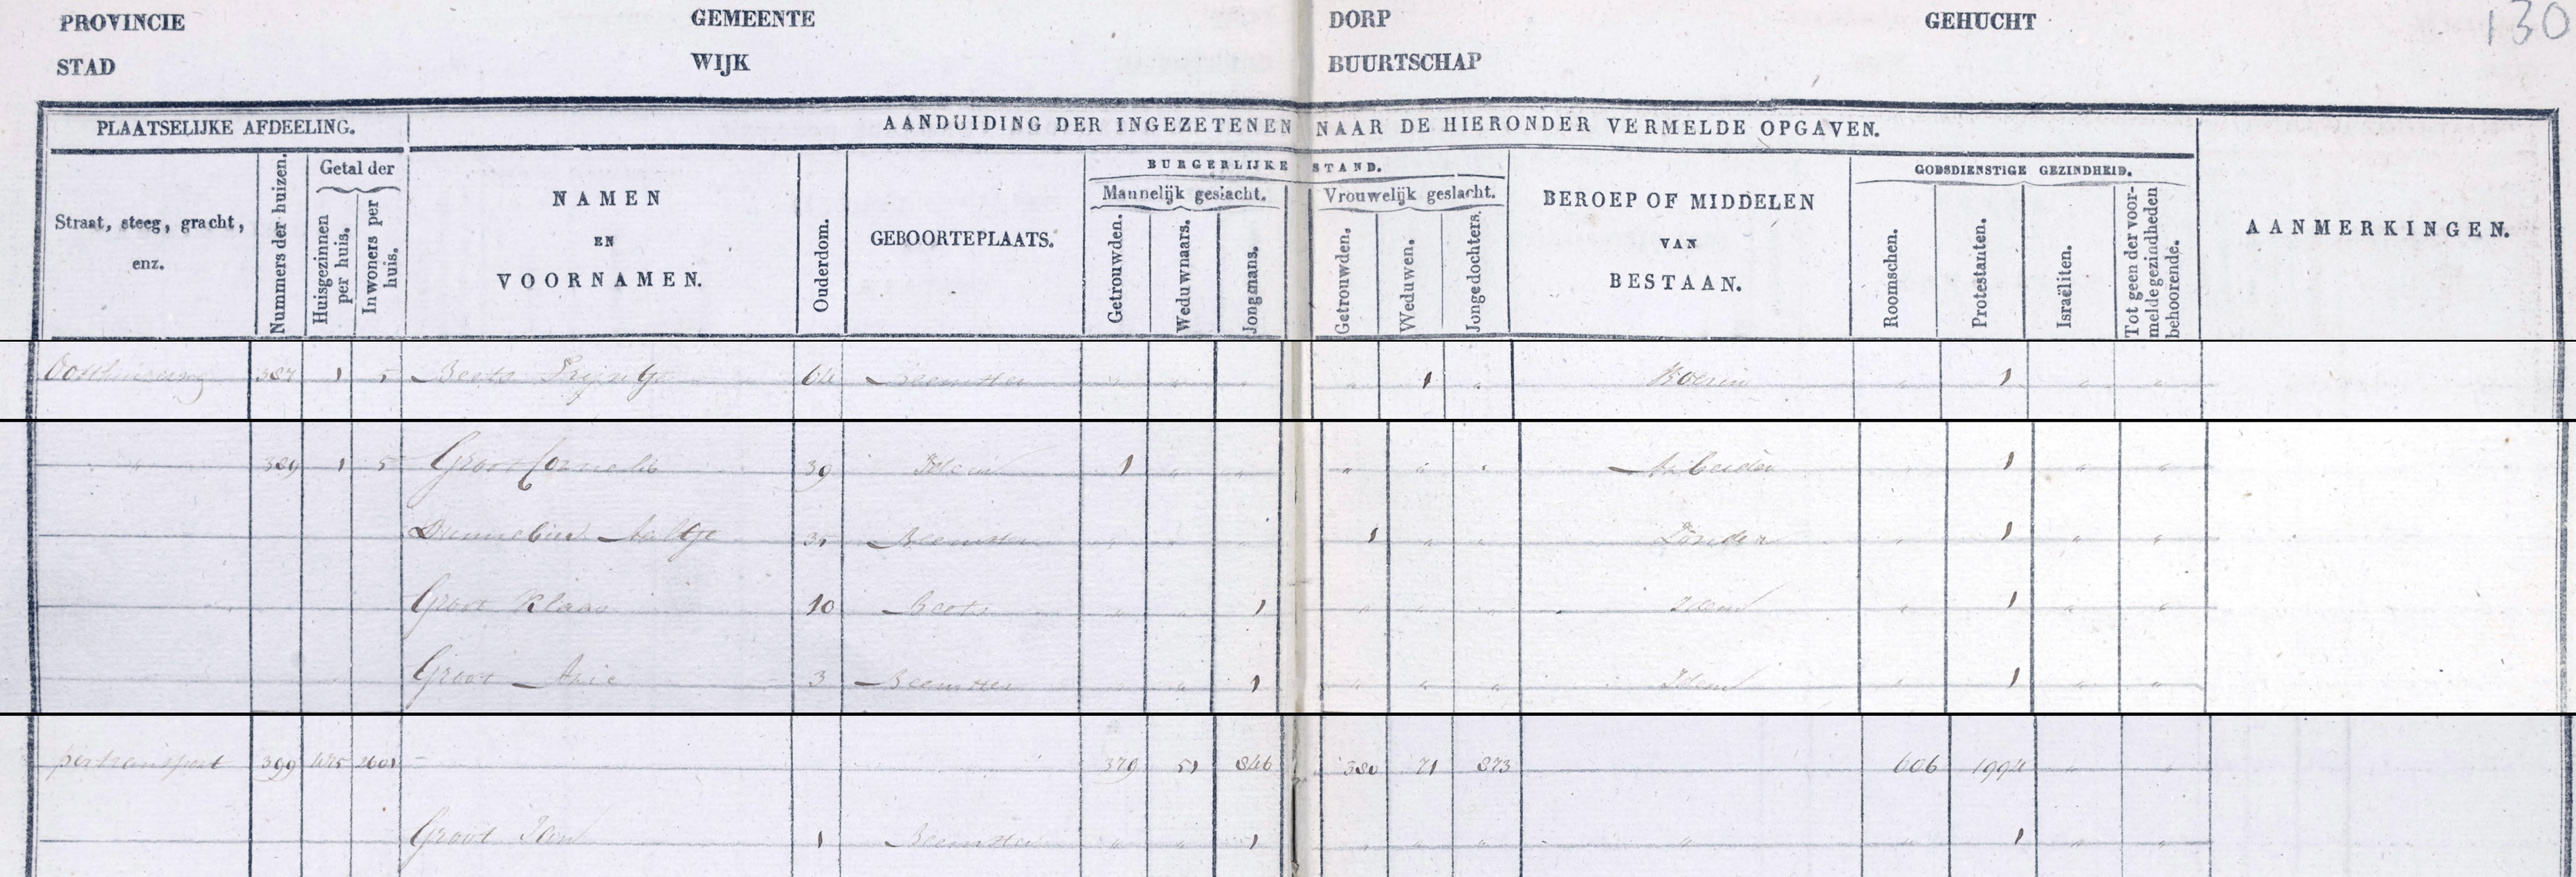 PROVINCIE GEMEENTE DORP GEHUCHT 130
STAD WIJK BUURTSCHAP
PLAATSELIJKE AFDEELING. AANDUIDING DER INGEZETENEN NAAR DE HIERONDER VERMELDE OPGAVEN.
Straat, steeg, gracht, enz.
Nummers der huizen.
Getal der
Huisgezinnen per huis.
Inwoners per huis.
NAMEN EN VOORNAMEN.
Ouderdom.
GEBOORTEPLAATS.
BURGERLIJKE STAND.
Mannelijk geslacht.
Getrouwden.
Weduwnaars.
Jongmans.
Vrouwelijk geslacht.
Getrouwden.
Weduwen.
Jongedochters.
BEROEP OF MIDDELEN VAN BESTAAN.
GODSDIENSTIGE GEZINDHEID.
Roomschen.
Protestanten.
Israëliten.
Tot geen der voormelde gezindheden behoorende.
AANMERKINGEN.
387 1 5 Beets Trijntje 64 Beemster " " " " 1 " Boerin " 1 " "
" 389 1 5 Groot Cornelis 39 Idem 1 " " " " " Arbeider " 1 " "
Aaltje Beemster " " " 1 " " Zonder " 1 " "
Groot Klaas 10 Beets " " 1 " " " Idem " 1 " "
Groot Arie 3 Beemster " " 1 " " " Idem " 1 " "
per transport 399 475 2601 379 51 846 380 71 873 606 1994 " "
Groot Jan 1 Beemster " " 1 " " " " " 1 " "